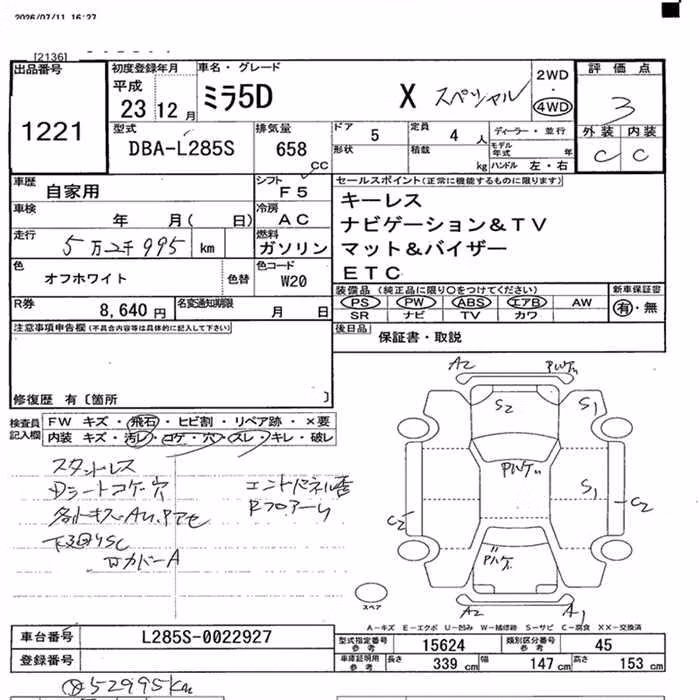 2026/07/11 16:27
[2136]
出品番号
1221
初度登録年月
平成
23 12 月
車名・グレード
ミラ5D X スペシャル
2WD
・
4WD
評価点
3
外装 内装
C C
型式
DBA-L285S
排気量
658
CC
ドア
5
形状
定員
4 人
積載
kg
ディーラー・並行
モデル
年式 年
ハンドル 左・右
車歴
自家用
シフト
F5
車検
年 月( 日)
冷房
AC
走行
5万2千995 km
燃料
ガソリン
色
オフホワイト
色替
色コード
W20
R券
8,640 円
名変通知期限
月 日
セールスポイント(正常に機能するものに限ります)
キーレス
ナビゲーション&TV
マット&バイザー
ETC
装備品 (純正品に限り○をつけてください)
PS PW ABS エアB AW
SR ナビ TV カワ
新車保証書
有・無
後日品
保証書・取説
注意事項申告欄(不具合内容等は具体的に記入して下さい)
修復歴 有〔箇所 〕
検査員
記入欄
FW キズ・飛石・ヒビ割・リペア跡・×要
内装 キズ・汚レ・コゲ・穴・スレ・キレ・破レ
スタッドレス
Dシートコゲ穴
下廻りSC
カバーA
A2
S2
S1
S1
C2
C2
A2
A1
スペア
A-キズ E-エクボ U-凹み W-補修跡 S-サビ C-腐食 XX-交換済
車台番号
L285S-0022927
登録番号
型式指定番号
参考
15624
類別区分番号
参考
45
車庫証明用
参考
長さ 339 cm 幅 147 cm 高さ 153 cm
52995Km